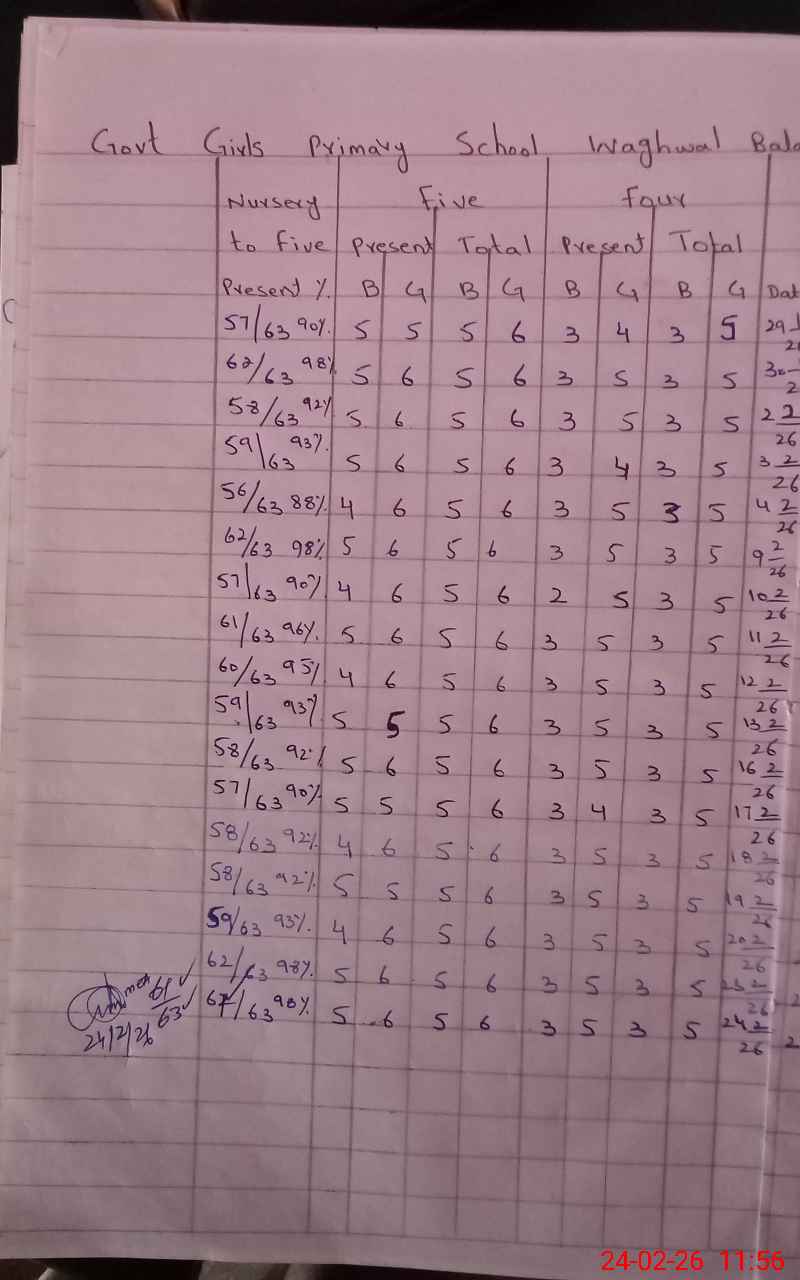 Govt Girls Primary School Waghwal Bala
Nursery Five Four
to Five Present Total Present Total
Present % B G B G B G B G Dat
57/63 90% 5 5 5 6 3 4 3 5 29-1
26
62/63 98% 5 6 5 6 3 5 3 5 30-
2
58/63 92% 5 6 5 6 3 5 3 5 2 2/26
59/63 93% 5 6 5 6 3 4 3 5 3 2/26
56/63 88% 4 6 5 6 3 5 3 5 4 2/26
62/63 98% 5 6 5 6 3 5 3 5 9 2/26
57/63 90% 4 6 5 6 2 5 3 5 10 2/26
61/63 96% 5 6 5 6 3 5 3 5 11 2/26
60/63 95% 4 6 5 6 3 5 3 5 12 2/26
59/63 93% 5 5 5 6 3 5 3 5 13 2/26
58/63 92% 5 6 5 6 3 5 3 5 16 2/26
57/63 90% 5 5 5 6 3 4 3 5 17 2/26
58/63 92% 4 6 5 6 3 5 3 5 18 2/26
58/63 92% 5 5 5 6 3 5 3 5 19 2/26
59/63 93% 4 6 5 6 3 5 3 5 20 2/26
62/63 98% 5 6 5 6 3 5 3 5 23 2/26
61/63 62/63 98% 5 6 5 6 3 5 3 5 24 2/26 2
24/2/26
24-02-26 11:56